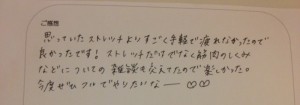 ご感想
思っていたストレッチよりすごく手軽で疲れなかったので
良かったです！ストレッチだけでなく筋肉のしくみ
などについての雑談も交えてたので楽しかった。
今度ぜひ クルでやりたいなー♡♡